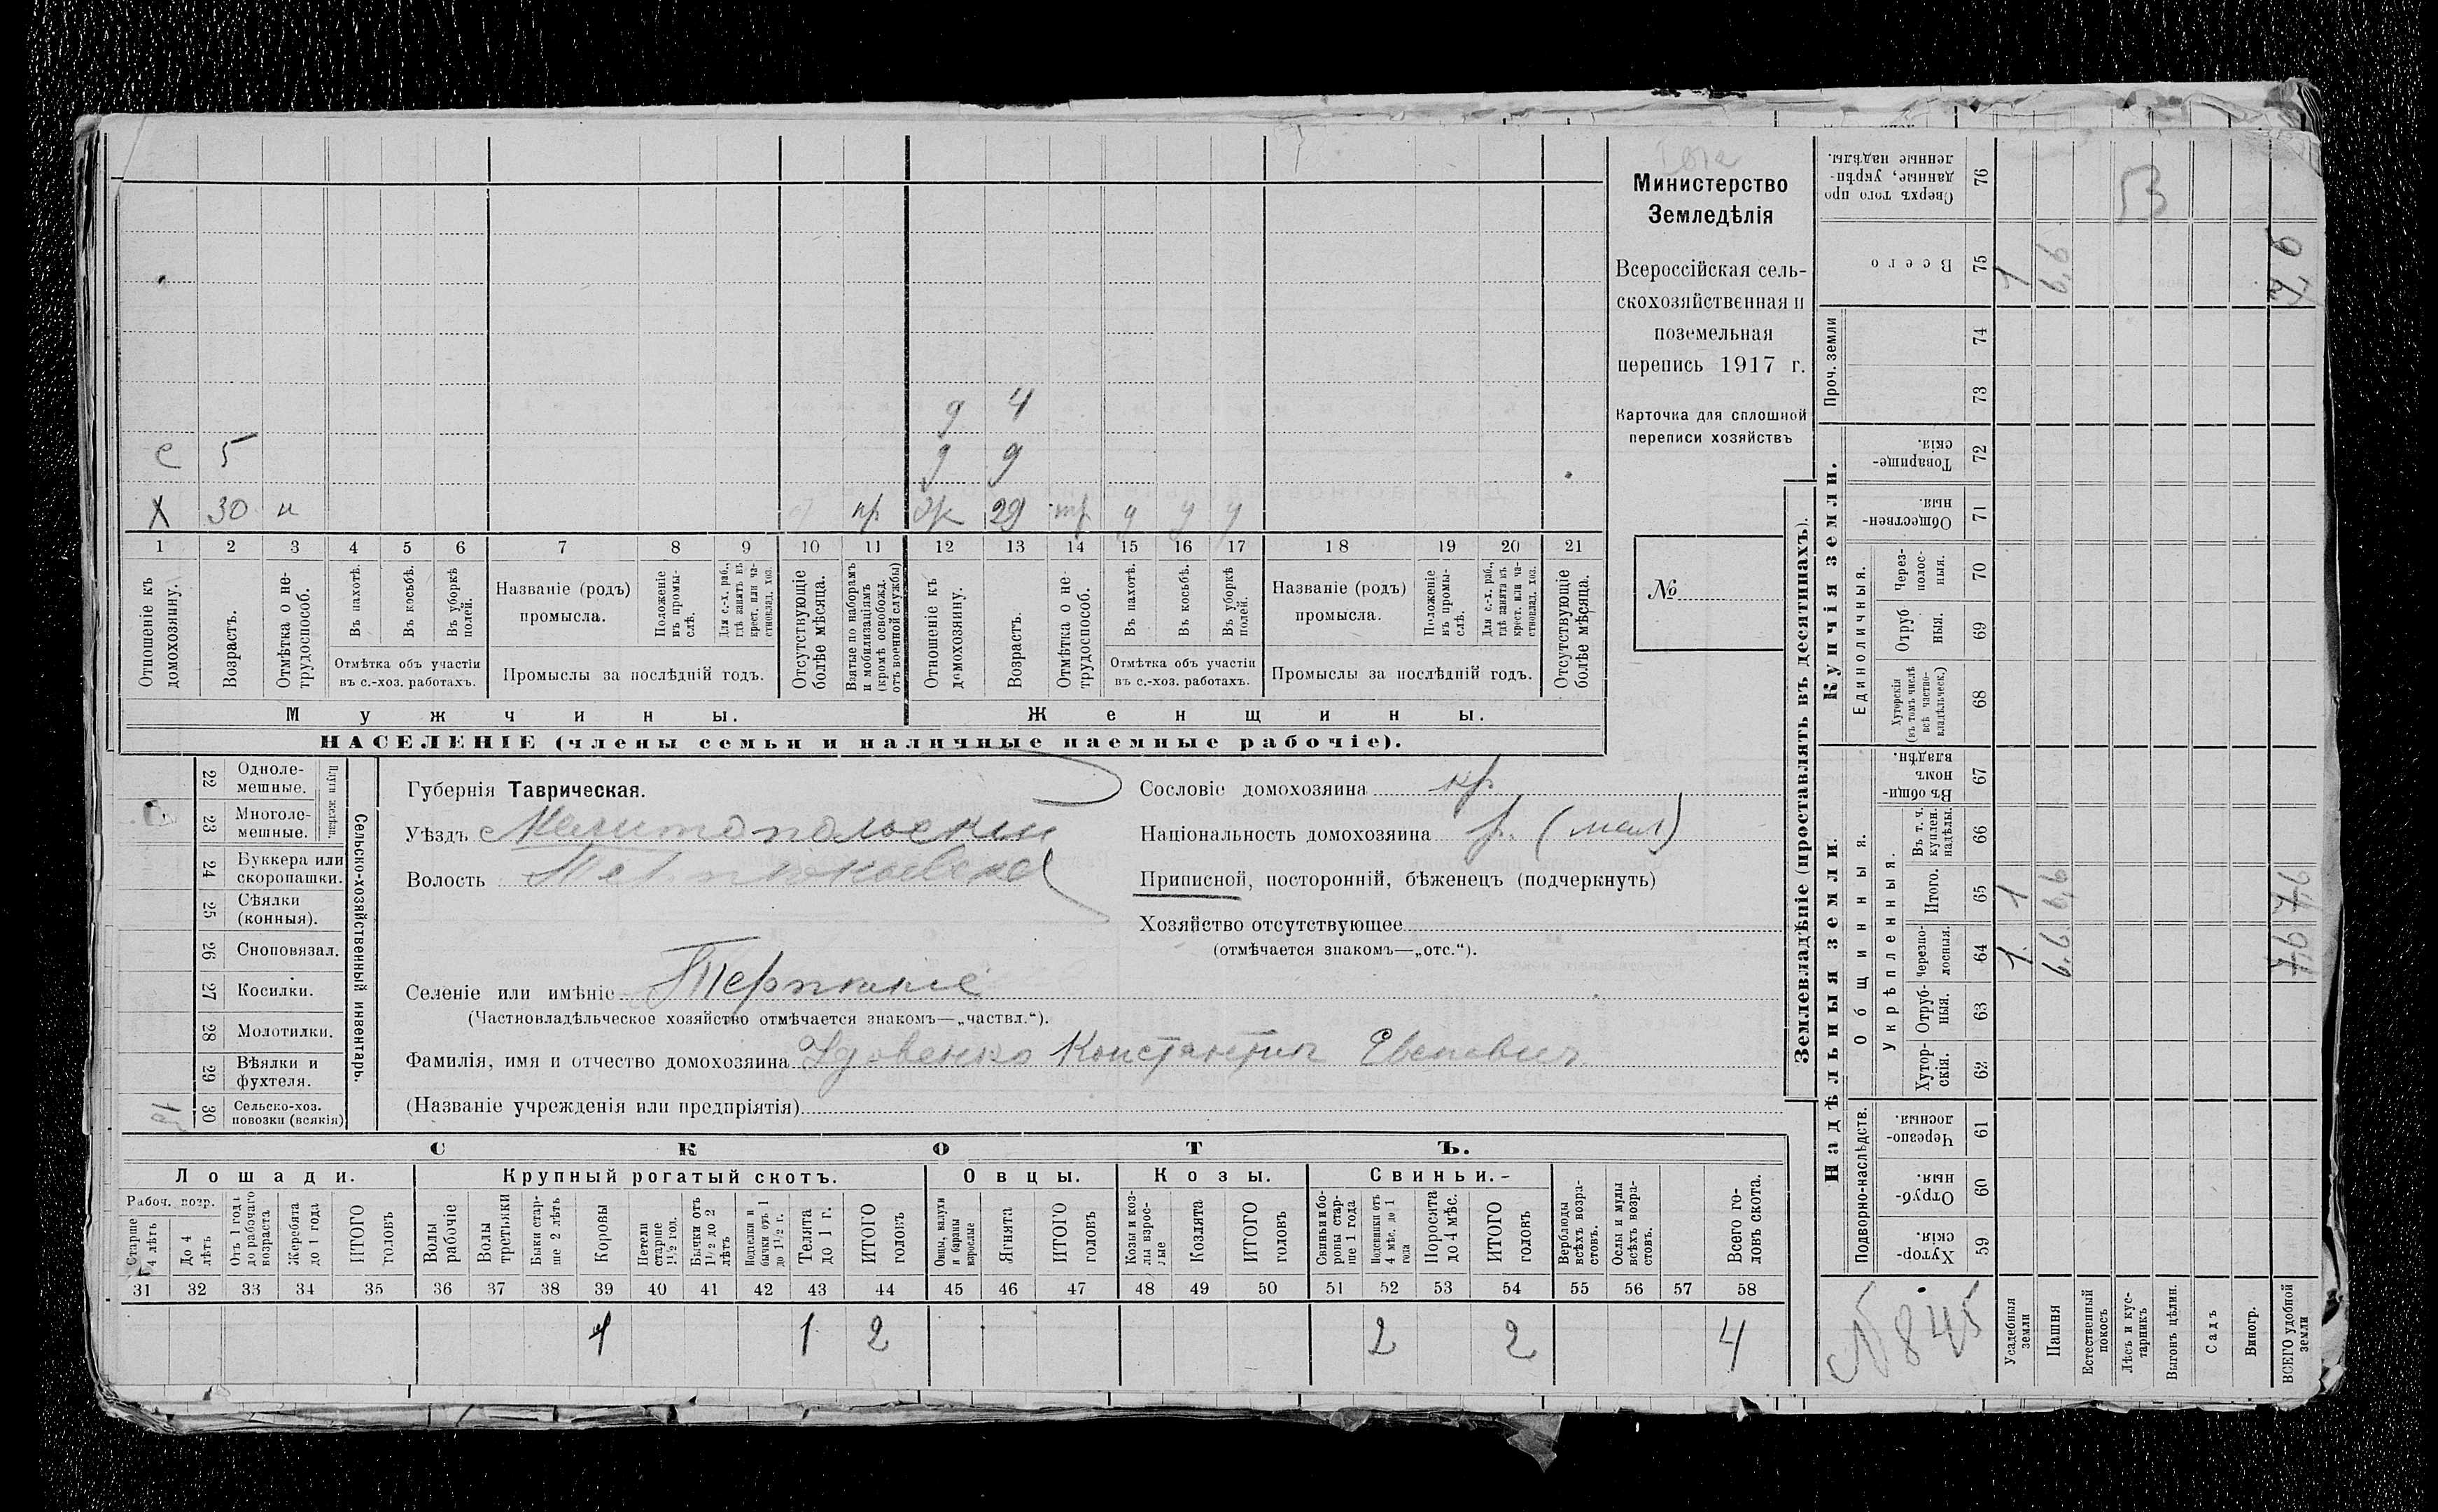 Министерство
Земледѣлія
Всероссійская сель-
скохозяйственная и
поземельная
перепись 1917 г.
Карточка для сплошной
переписи хозяйствъ
№
д 4
с 5 д 9
Х 30 н пр ж 29 тр у у у
1 2 3 4 5 6 7 8 9 10 11 12 13 14 15 16 17 18 19 20 21
Отношеніе къ домохозяину.
Возрастъ.
Отмѣтка о не-трудоспособ.
Въ пахотѣ.
Въ косьбѣ.
Въ уборкѣ полей.
Отмѣтка объ участіи
въ с.-хоз. работахъ.
Названіе (родъ)
промысла.
Положеніе въ промы-слѣ.
Для с.-х. раб., гдѣ занятъ въ крест. или ча-стновлад. хоз.
Промыслы за послѣдній годъ.
Отсутствующіе болѣе мѣсяца.
Взятые по наборамъ и мобилизаціямъ (кромѣ освобожд. отъ военной службы)
Отношеніе къ домохозяину.
Возрастъ.
Отмѣтка о не-трудоспособ.
Въ пахотѣ.
Въ косьбѣ.
Въ уборкѣ полей.
Отмѣтка объ участіи
въ с.-хоз. работахъ.
Названіе (родъ)
промысла.
Положеніе въ промы-слѣ.
Для с.-х. раб., гдѣ занятъ въ крест. или ча-стновлад. хоз.
Промыслы за послѣдній годъ.
Отсутствующіе болѣе мѣсяца.
Мужчины.
Женщины.
НАСЕЛЕНІЕ (члены семьи и наличные наемные рабочіе).
22 Одноле-мешные.
23 Многоле-мешные.
Плуги желѣзн.
24 Буккера или скоропашки.
25 Сѣялки (конныя).
26 Сноповязал.
27 Косилки.
28 Молотилки.
29 Вѣялки и фухтеля.
30 Сельско-хоз. повозки (всякія)
Сельско-хозяйственный инвентарь.
Губернія Таврическая.
Уѣздъ Мелитопольскій
Волость
Селеніе или имѣніе Терпѣніе
(Частновладѣльческое хозяйство отмѣчается знакомъ—„частвл.“).
Фамилія, имя и отчество домохозяина Удовенко Константин
(Названіе учрежденія или предпріятія)
Сословіе домохозяина кр.
Національность домохозяина р. (мал)
Приписной, посторонній, бѣженецъ (подчеркнуть)
Хозяйство отсутствующее
(отмѣчается знакомъ—„отс.“).
СКОТЪ.
Лошади.
Крупный рогатый скотъ.
Овцы.
Козы.
Свиньи.
Рабоч. возр.
Старше 4 лѣтъ
До 4 лѣтъ
Отъ 1 года до рабочаго возраста
Жеребята до 1 года
ИТОГО головъ
Волы рабочіе
Волы третьяки
Быки стар-ше 2 лѣтъ
Коровы
Нетели старше 1½ год.
Бычки отъ 1½ до 2 лѣтъ
Подтелки и бычки отъ 1 до 1½ г.
Телята до 1 г.
ИТОГО головъ
Овцы, валухи и бараны взрослые
Ягнята
ИТОГО головъ
Козы и коз-лы взрос-лые
Козлята
ИТОГО головъ
Свиньи и бо-ровы стар-ше 1 года
Подсвинки отъ 4 мѣс. до 1 года
Поросята до 4 мѣс.
ИТОГО головъ
Верблюды всѣхъ возра-стовъ.
Ослы и мулы всѣхъ возра-стовъ.
Всего го-ловъ скота.
31 32 33 34 35 36 37 38 39 40 41 42 43 44 45 46 47 48 49 50 51 52 53 54 55 56 57 58
1 1 2 2 2 4
Землевладѣніе (проставлять въ десятинахъ).
Надѣльныя земли.
Купчія земли.
Проч. земли
Подворно-наслѣдств.
Общинныя.
Укрѣпленныя.
Единоличныя.
Сверхъ того про данные, укрѣп-ленные надѣлы. 76
Всего 75
74
73
Товарище-скія. 72
Обществен-ныя. 71
Через-полос-ныя. 70
Отруб ныя. 69
Хуторскія (въ томъ числѣ всѣ частно-владѣльческ.) 68
Въ общи-номъ владѣн. 67
Въ т. ч. куплен. надѣлы. 66
Итого. 65
Черезпо-лосныя. 64
Отруб-ныя. 63
Хутор-скія. 62
Черезпо-лосныя 61
Отруб-ныя. 60
Хутор-скія. 59
№ 845
Усадебныя земли
Пашня
Естественный покосъ
Лѣсъ и кус-тарникъ
Выгонъ цѣлин.
Садъ
Виногр.
ВСЕГО удобной земли